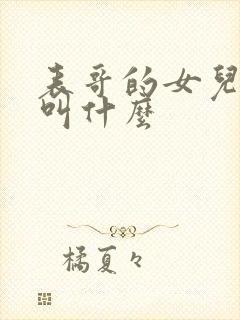 表哥的女兒
叫什麼
橘夏々